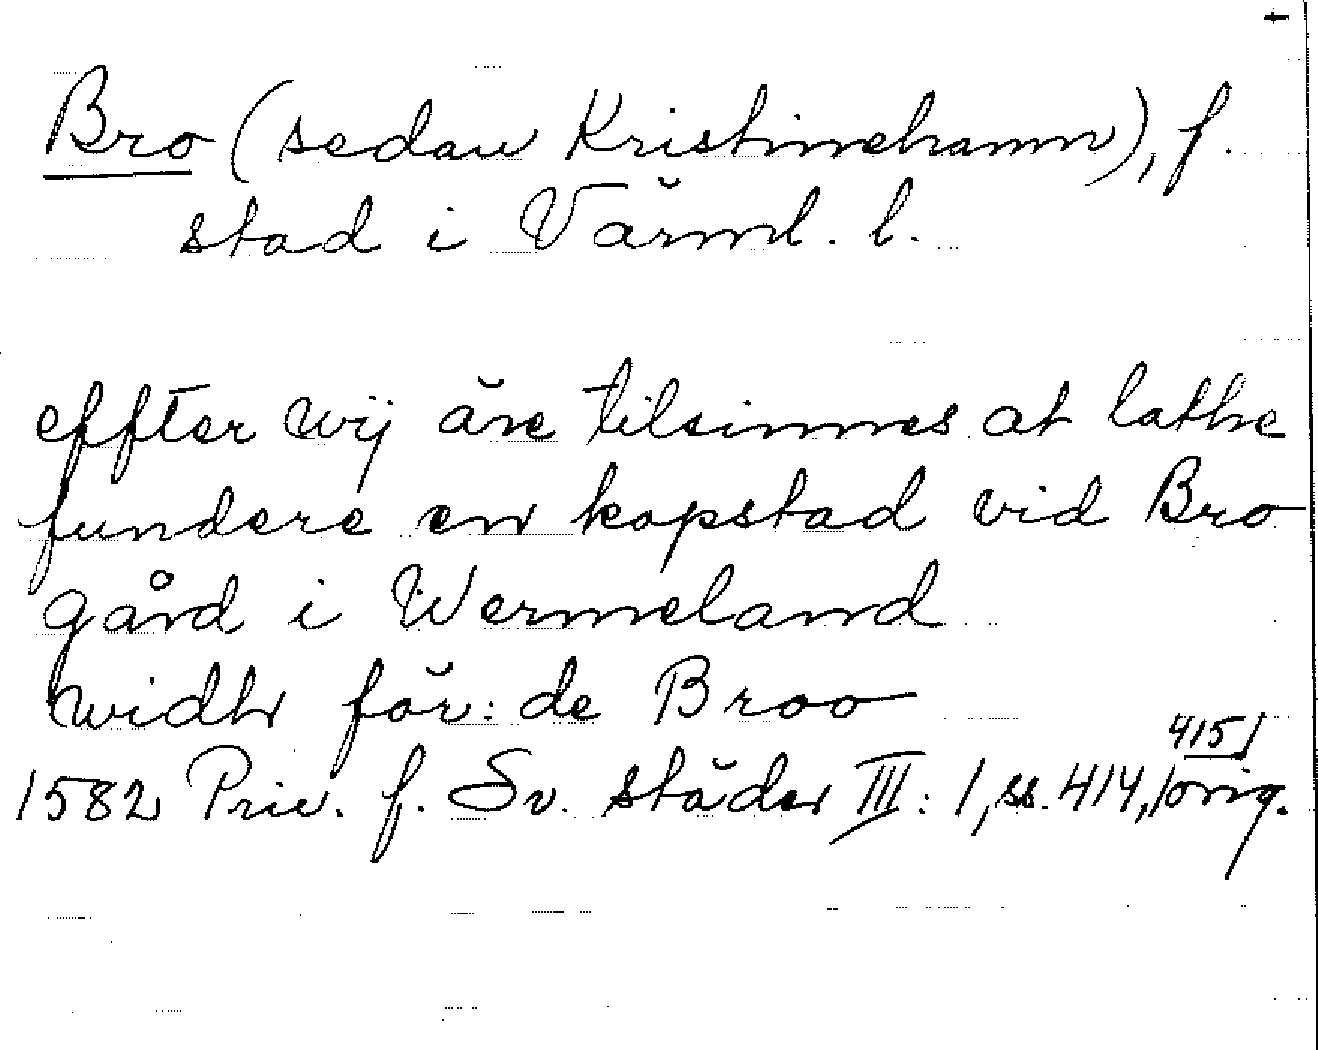 Bro (sedan Kristinehamn), f.
stad i Värml. l.
effter wij äre tilsinnes at lathe
fundere en kopstad vid Bro
gård i Wermeland
widhr för: de Broo
415
1582 Priv. f. Sv. städer III: 1, ss. 414, orig.